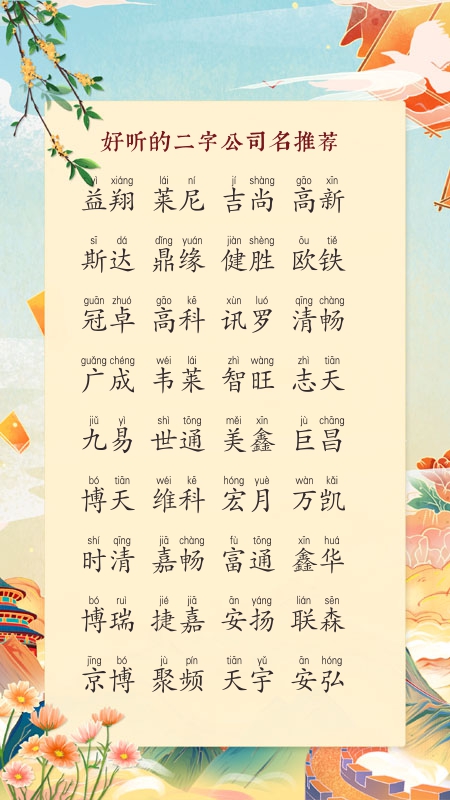 好听的二字公司名推荐
yì xiáng lái ní jí shàng gāo xīn
益翔 莱尼 吉尚 高新
sī dá dǐng yuán jiàn shèng ōu tiě
斯达 鼎缘 健胜 欧铁
guān zhuó gāo kē xùn luó qīng chàng
冠卓 高科 讯罗 清畅
guǎng chéng wéi lái zhì wàng zhì tiān
广成 韦莱 智旺 志天
jiǔ yì shì tōng měi xīn jù chāng
九易 世通 美鑫 巨昌
bó tiān wéi kē hóng yuè wàn kǎi
博天 维科 宏月 万凯
shí qīng jiā chàng fù tōng xīn huá
时清 嘉畅 富通 鑫华
bó ruì jié jiā ān yáng lián sēn
博瑞 捷嘉 安扬 联森
jīng bó jù pín tiān yǔ ān hóng
京博 聚频 天宇 安弘